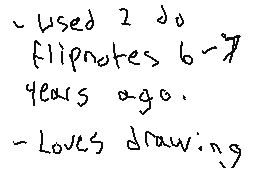 - used 2 do
flipnotes 6-7
years ago.
- Loves drawing